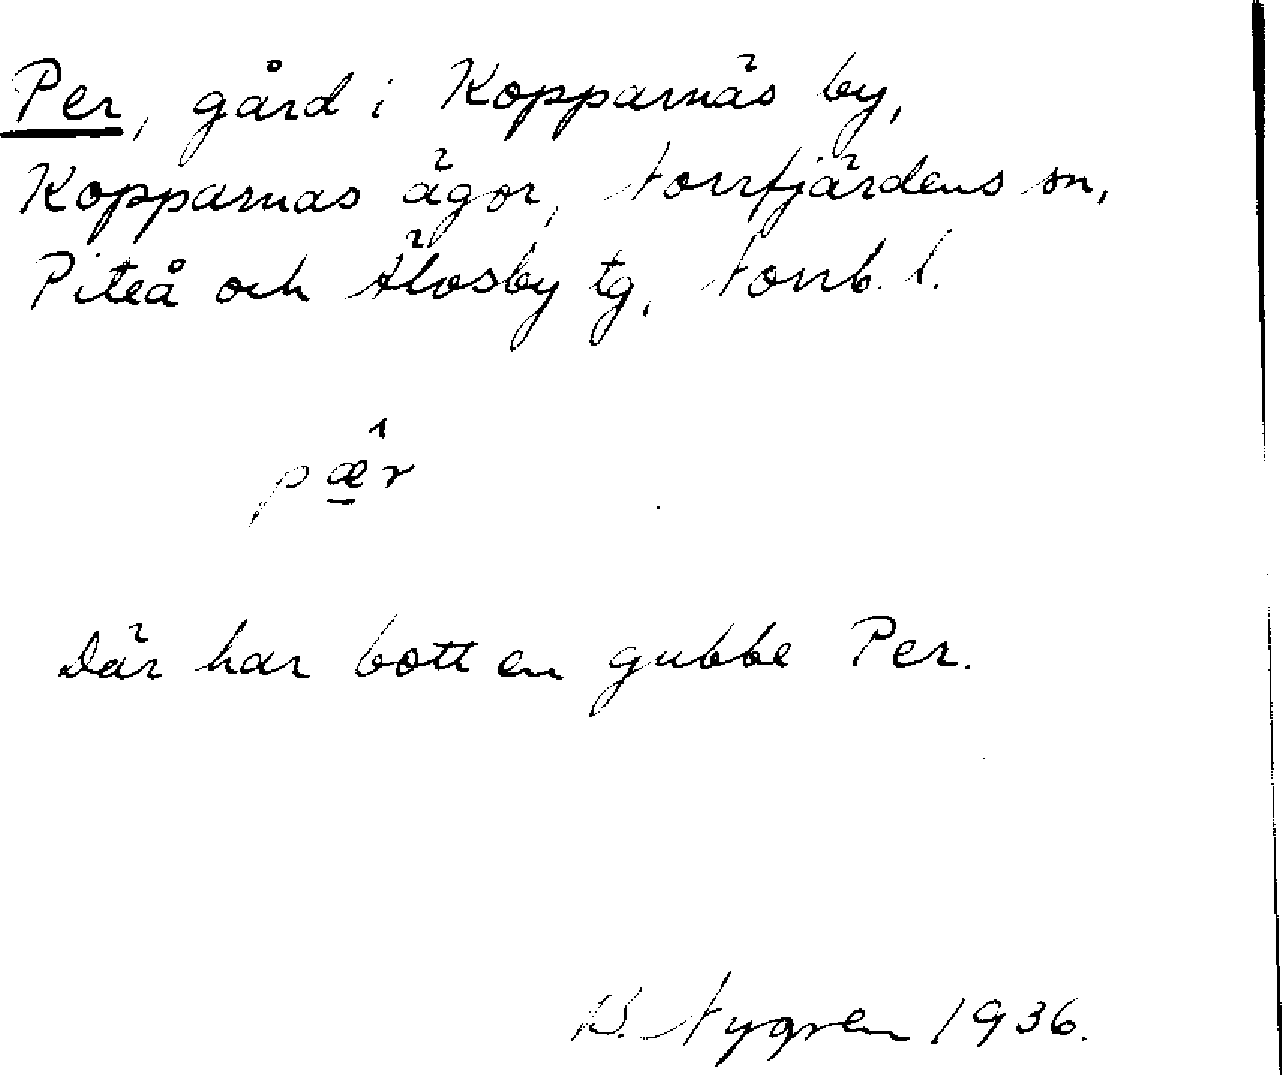 Per, gård i Kopparnäs by,
Kopparnas ägor, Norrfjärdens sn,
Piteå och Älvsby tg, Norrb. l.
pæ̂r
Där har bott en gubbe Per.
B. Nygren 1936.